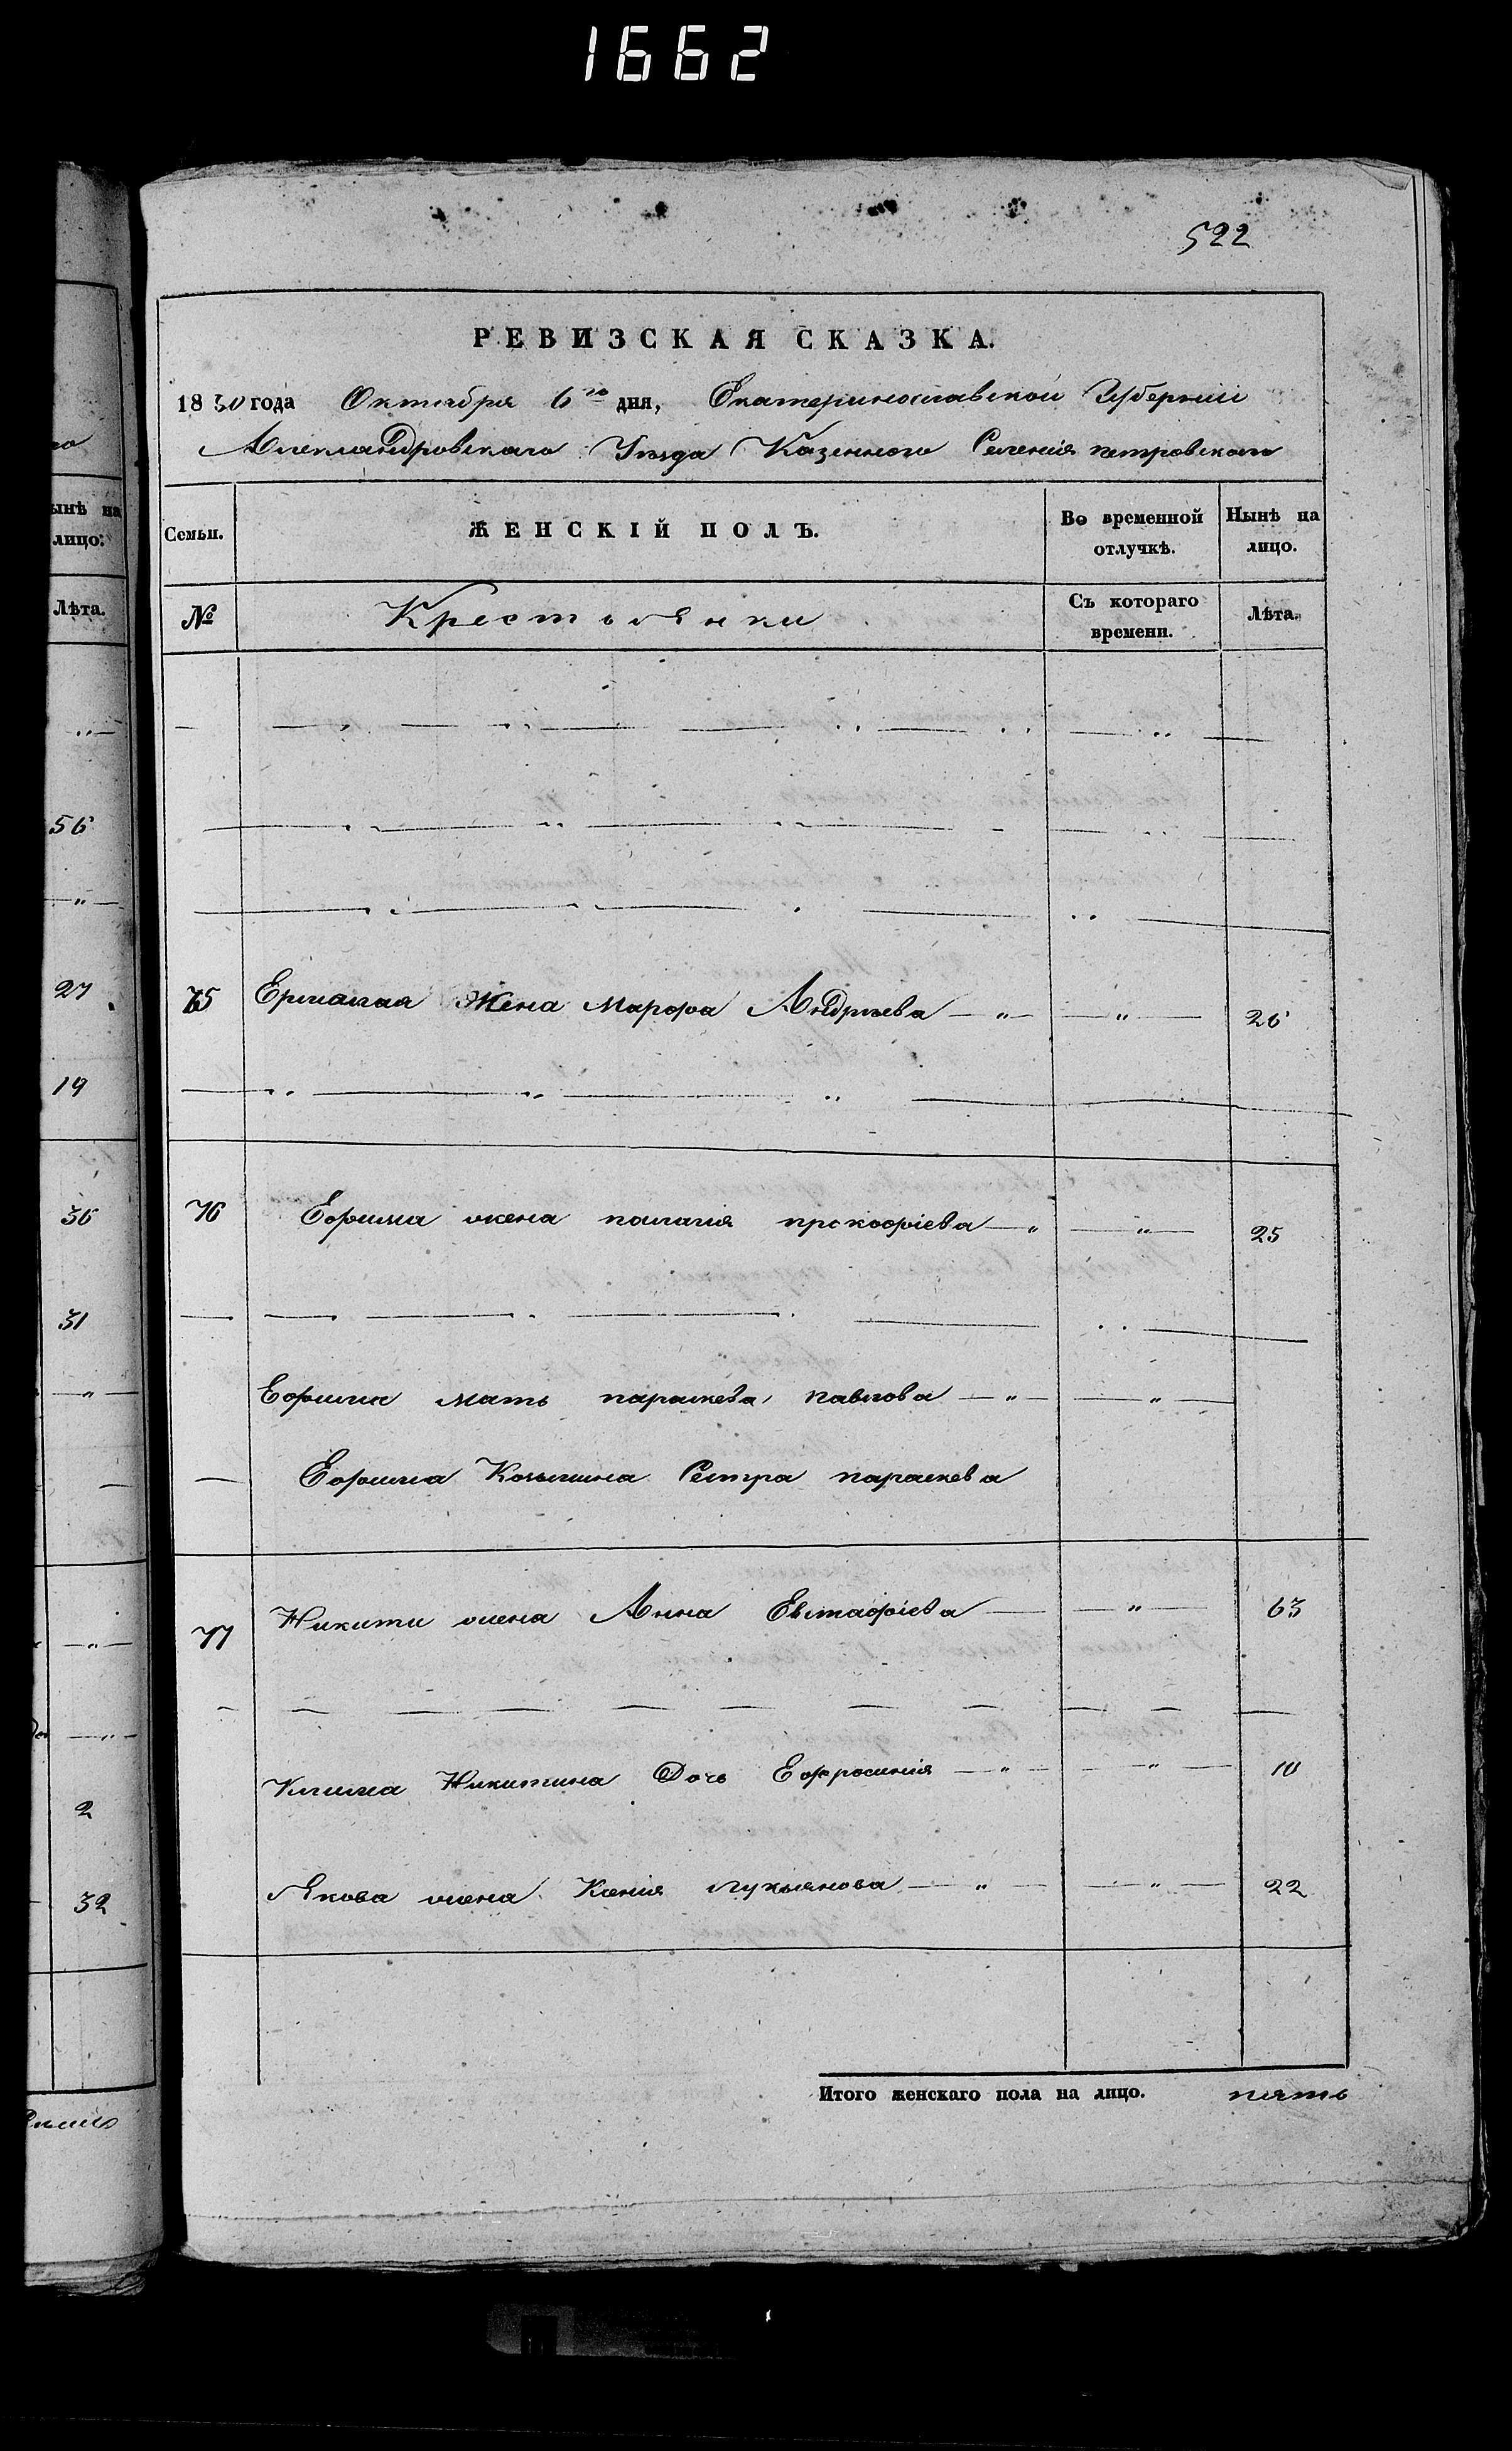 1662
522
РЕВИЗСКАЯ СКАЗКА.
1850 года Октября 6го дня, Екатеринославской Губерніи
Александровского Уезда Казенного Селенія петровского
Семьи. ЖЕНСКІЙ ПОЛЪ. Во временной отлучкѣ. Нынѣ на лицо.
№ Крестьянки Съ котораго времени. Лѣта.
75 Ермолая Жена Марфа Андрѣева — „ — — „ — 26
76 Ефима жена палагія прокофіева — „ — „ — 25
Ефима мать параскева павлова — „ — — „ —
— Ефима Сестра параскева
77 Никити жена Анна Евстафіева — — „ — 63
Клима Никитина Дочь Ефросинія — „ — — „ — 10
Якова жена Ксенія лукьянова — „ — — „ — 22
Итого женскаго пола на лицо. пять
ынѣ на
лицо.
Лѣта.
56
27
19
36
31
2
32